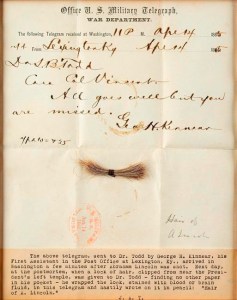 Office U. S. Military Telegraph,
WAR DEPARTMENT.
The following Telegram received at Washington, 11 P M. Apl 14 1865
From Lexington Ky Apl 14 1865
Dr L B Todd
Care Col Vincent
All goes well but you
are missed.
Geo H Kinnear
Hair of
A Lincoln
The above telegram, sent to Dr. Todd by George H. Kinnear, his
First Assistant in the Post Office at Lexington, Ky., arrived in
Washington a few minutes after Abraham Lincoln was shot. Next day,
at the postmortem, when a lock of hair, clipped from near the Presi-
dent's left temple, was given to Dr. Todd - finding no other paper
in his pocket - he wrapped the lock, stained with blood or brain
fluid, in this telegram and hastily wrote on it in pencil: "Hair
of A. Lincoln".